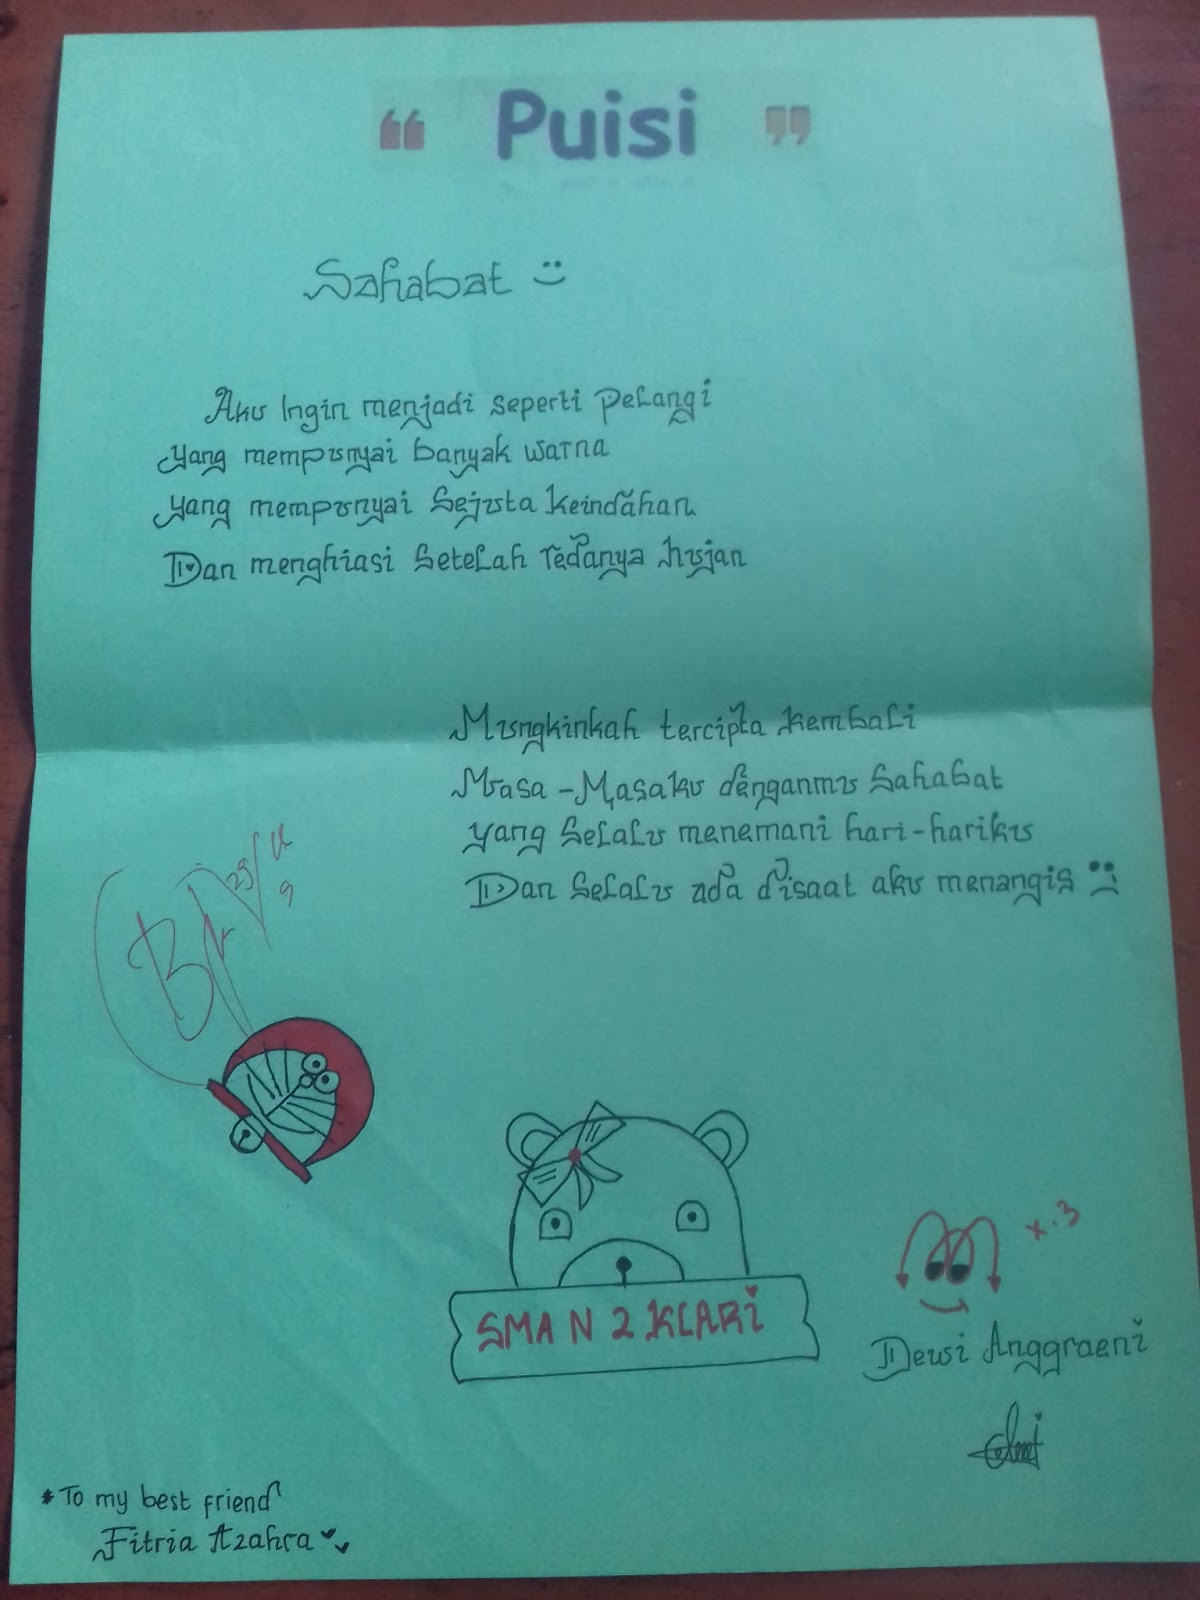 “ Puisi ”
Sahabat
Aku Ingin menjadi seperti Pelangi
yang mempunyai banyak warna
yang mempunyai Sejuta Keindahan
Dan menghiasi Setelah redanya hujan
Mungkinkah tercipta Kembali
Masa-Masaku denganmu Sahabat
yang Selalu menemani hari-hariku
Dan Selalu ada disaat aku menangis
SMA N 2 KLARI
X.3
Dewi Anggraeni
*To my best friend
Fitria Azahra